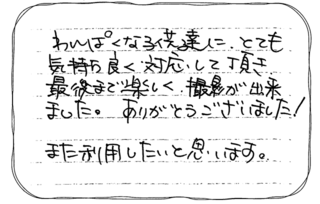 わんぱくな子供達に、とても
気持ち良く対応して頂き
最後まで楽しく、撮影が出来
ました。ありがとうございました!
また利用したいと思います。